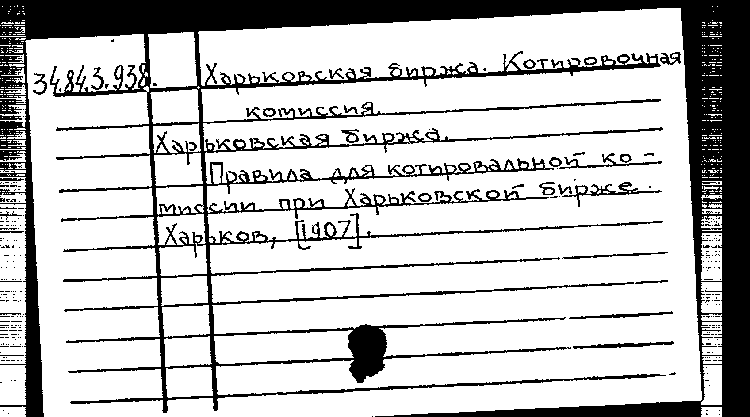 34.84.3.938. Харьковская биржа. Котировочная
комиссия.
Харьковская биржа.
Правила для котировальной ко-
миссии при Харьковской бирже.
Харьков, [1907].